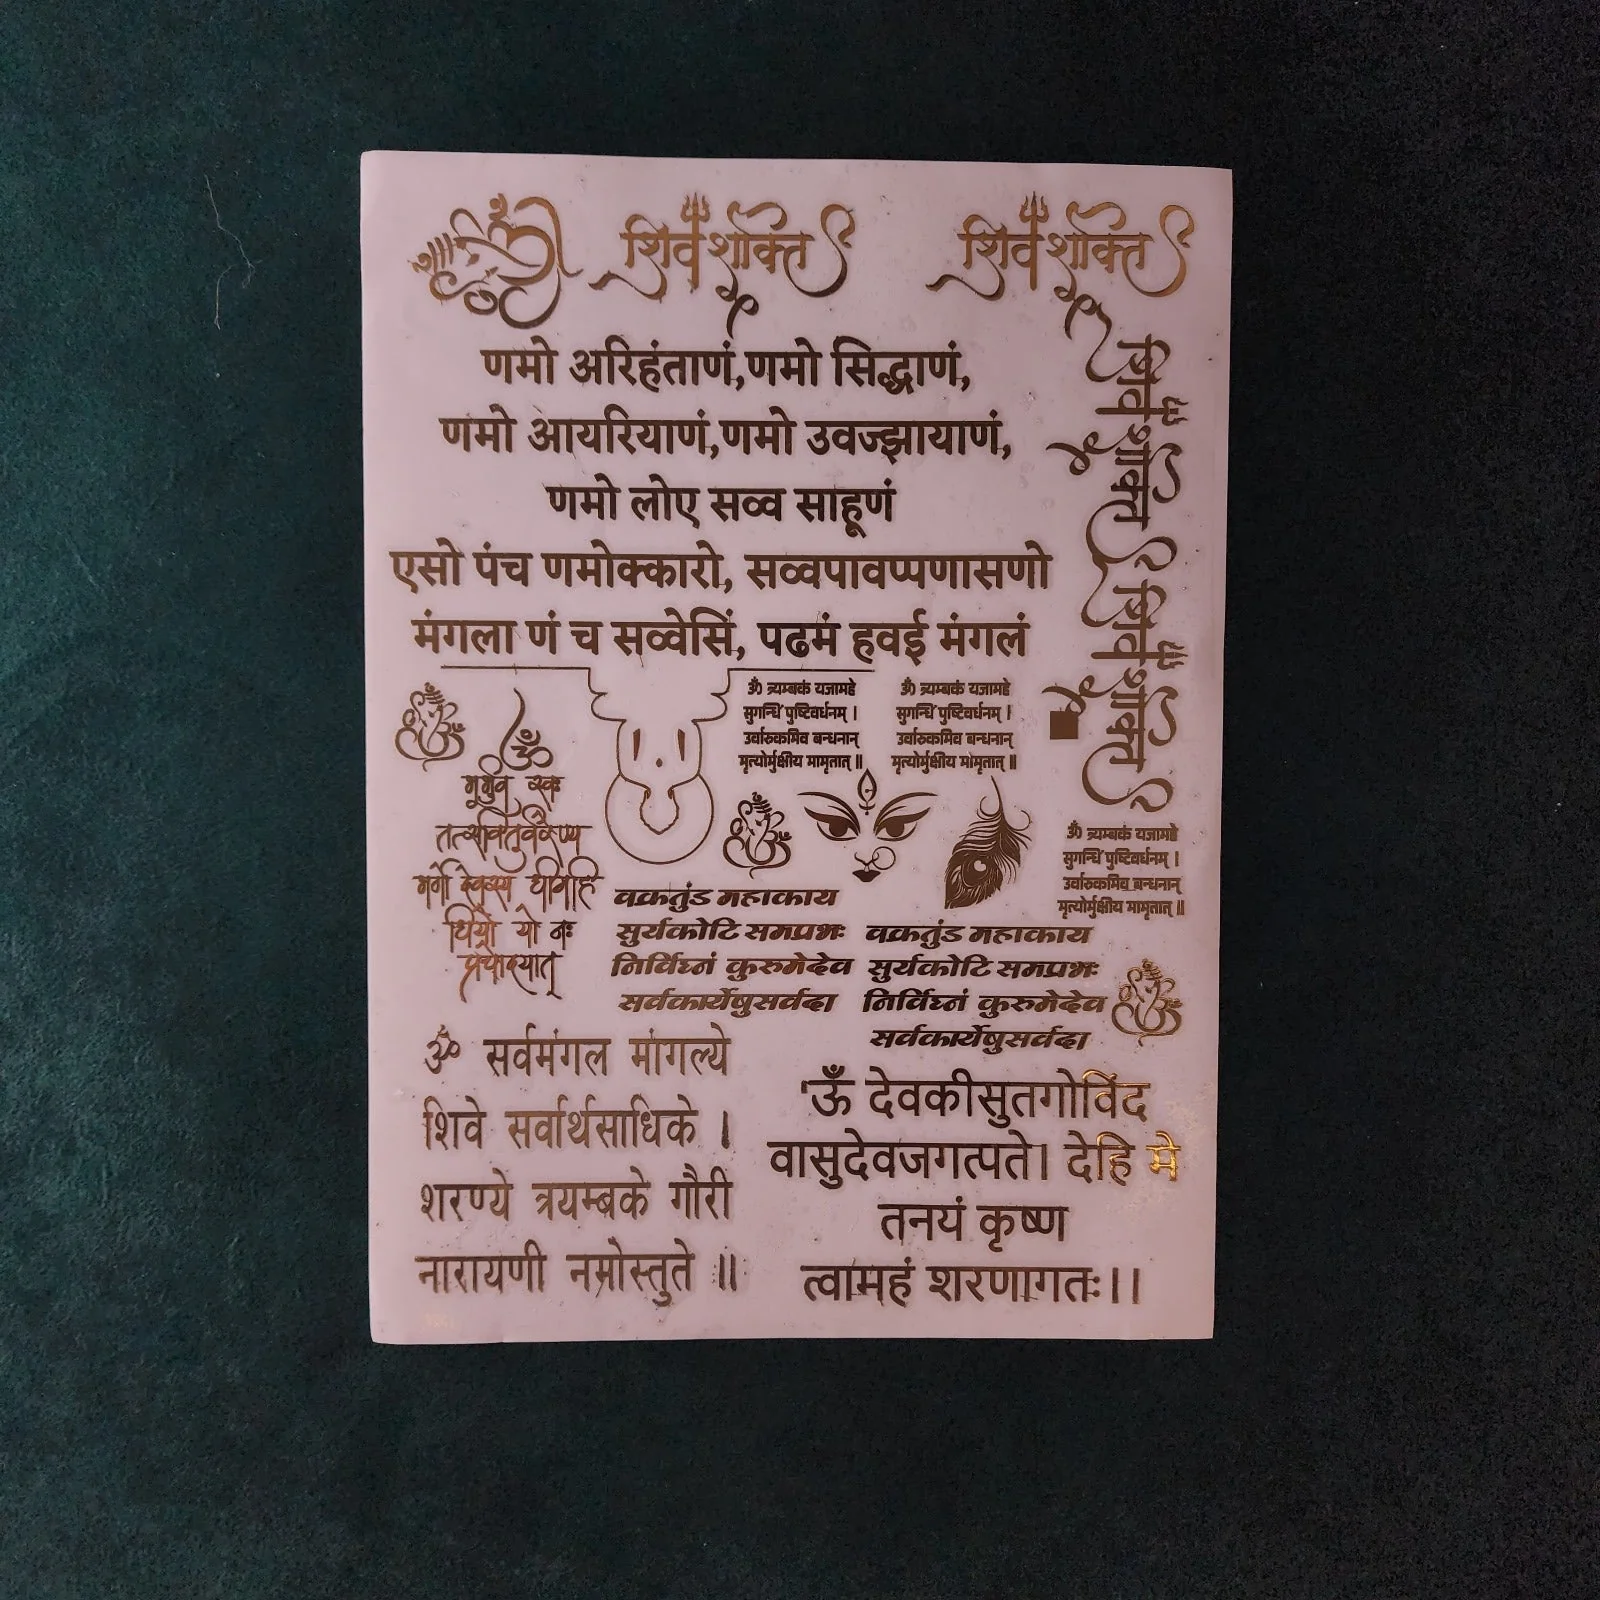 शिव शक्ति
शिव शक्ति
णमो अरिहंताणं,णमो सिद्धाणं,
णमो आयरियाणं,णमो उवज्झायाणं,
णमो लोए सव्व साहूणं
एसो पंच णमोक्कारो, सव्वपावप्पणासणो
मंगला णं च सव्वेसिं, पढमं हवई मंगलं
शिव शक्ति
शिव शक्ति
ॐ
भूर्भुव स्वः
तत्सवितुर्वरेण्य
भर्गो देवस्य धीमहि
धियो यो नः
प्रचोदयात्
ॐ त्र्यम्बकं यजामहे
सुगन्धिं पुष्टिवर्धनम् ।
उर्वारुकमिव बन्धनान्
मृत्योर्मुक्षीय मामृतात् ॥
ॐ त्र्यम्बकं यजामहे
सुगन्धिं पुष्टिवर्धनम् ।
उर्वारुकमिव बन्धनान्
मृत्योर्मुक्षीय मामृतात् ॥
ॐ त्र्यम्बकं यजामहे
सुगन्धिं पुष्टिवर्धनम् ।
उर्वारुकमिव बन्धनान्
मृत्योर्मुक्षीय मामृतात् ॥
वक्रतुंड महाकाय
सुर्यकोटि समप्रभः
निर्विघ्नं कुरुमेदेव
सर्वकार्येषुसर्वदा
वक्रतुंड महाकाय
सुर्यकोटि समप्रभः
निर्विघ्नं कुरुमेदेव
सर्वकार्येषुसर्वदा
ॐ सर्वमंगल मांगल्ये
शिवे सर्वार्थसाधिके ।
शरण्ये त्रयम्बके गौरी
नारायणी नमोस्तुते ॥
'ॐ देवकीसुतगोविंद
वासुदेवजगत्पते। देहि मे
तनयं कृष्ण
त्वामहं शरणागतः।।